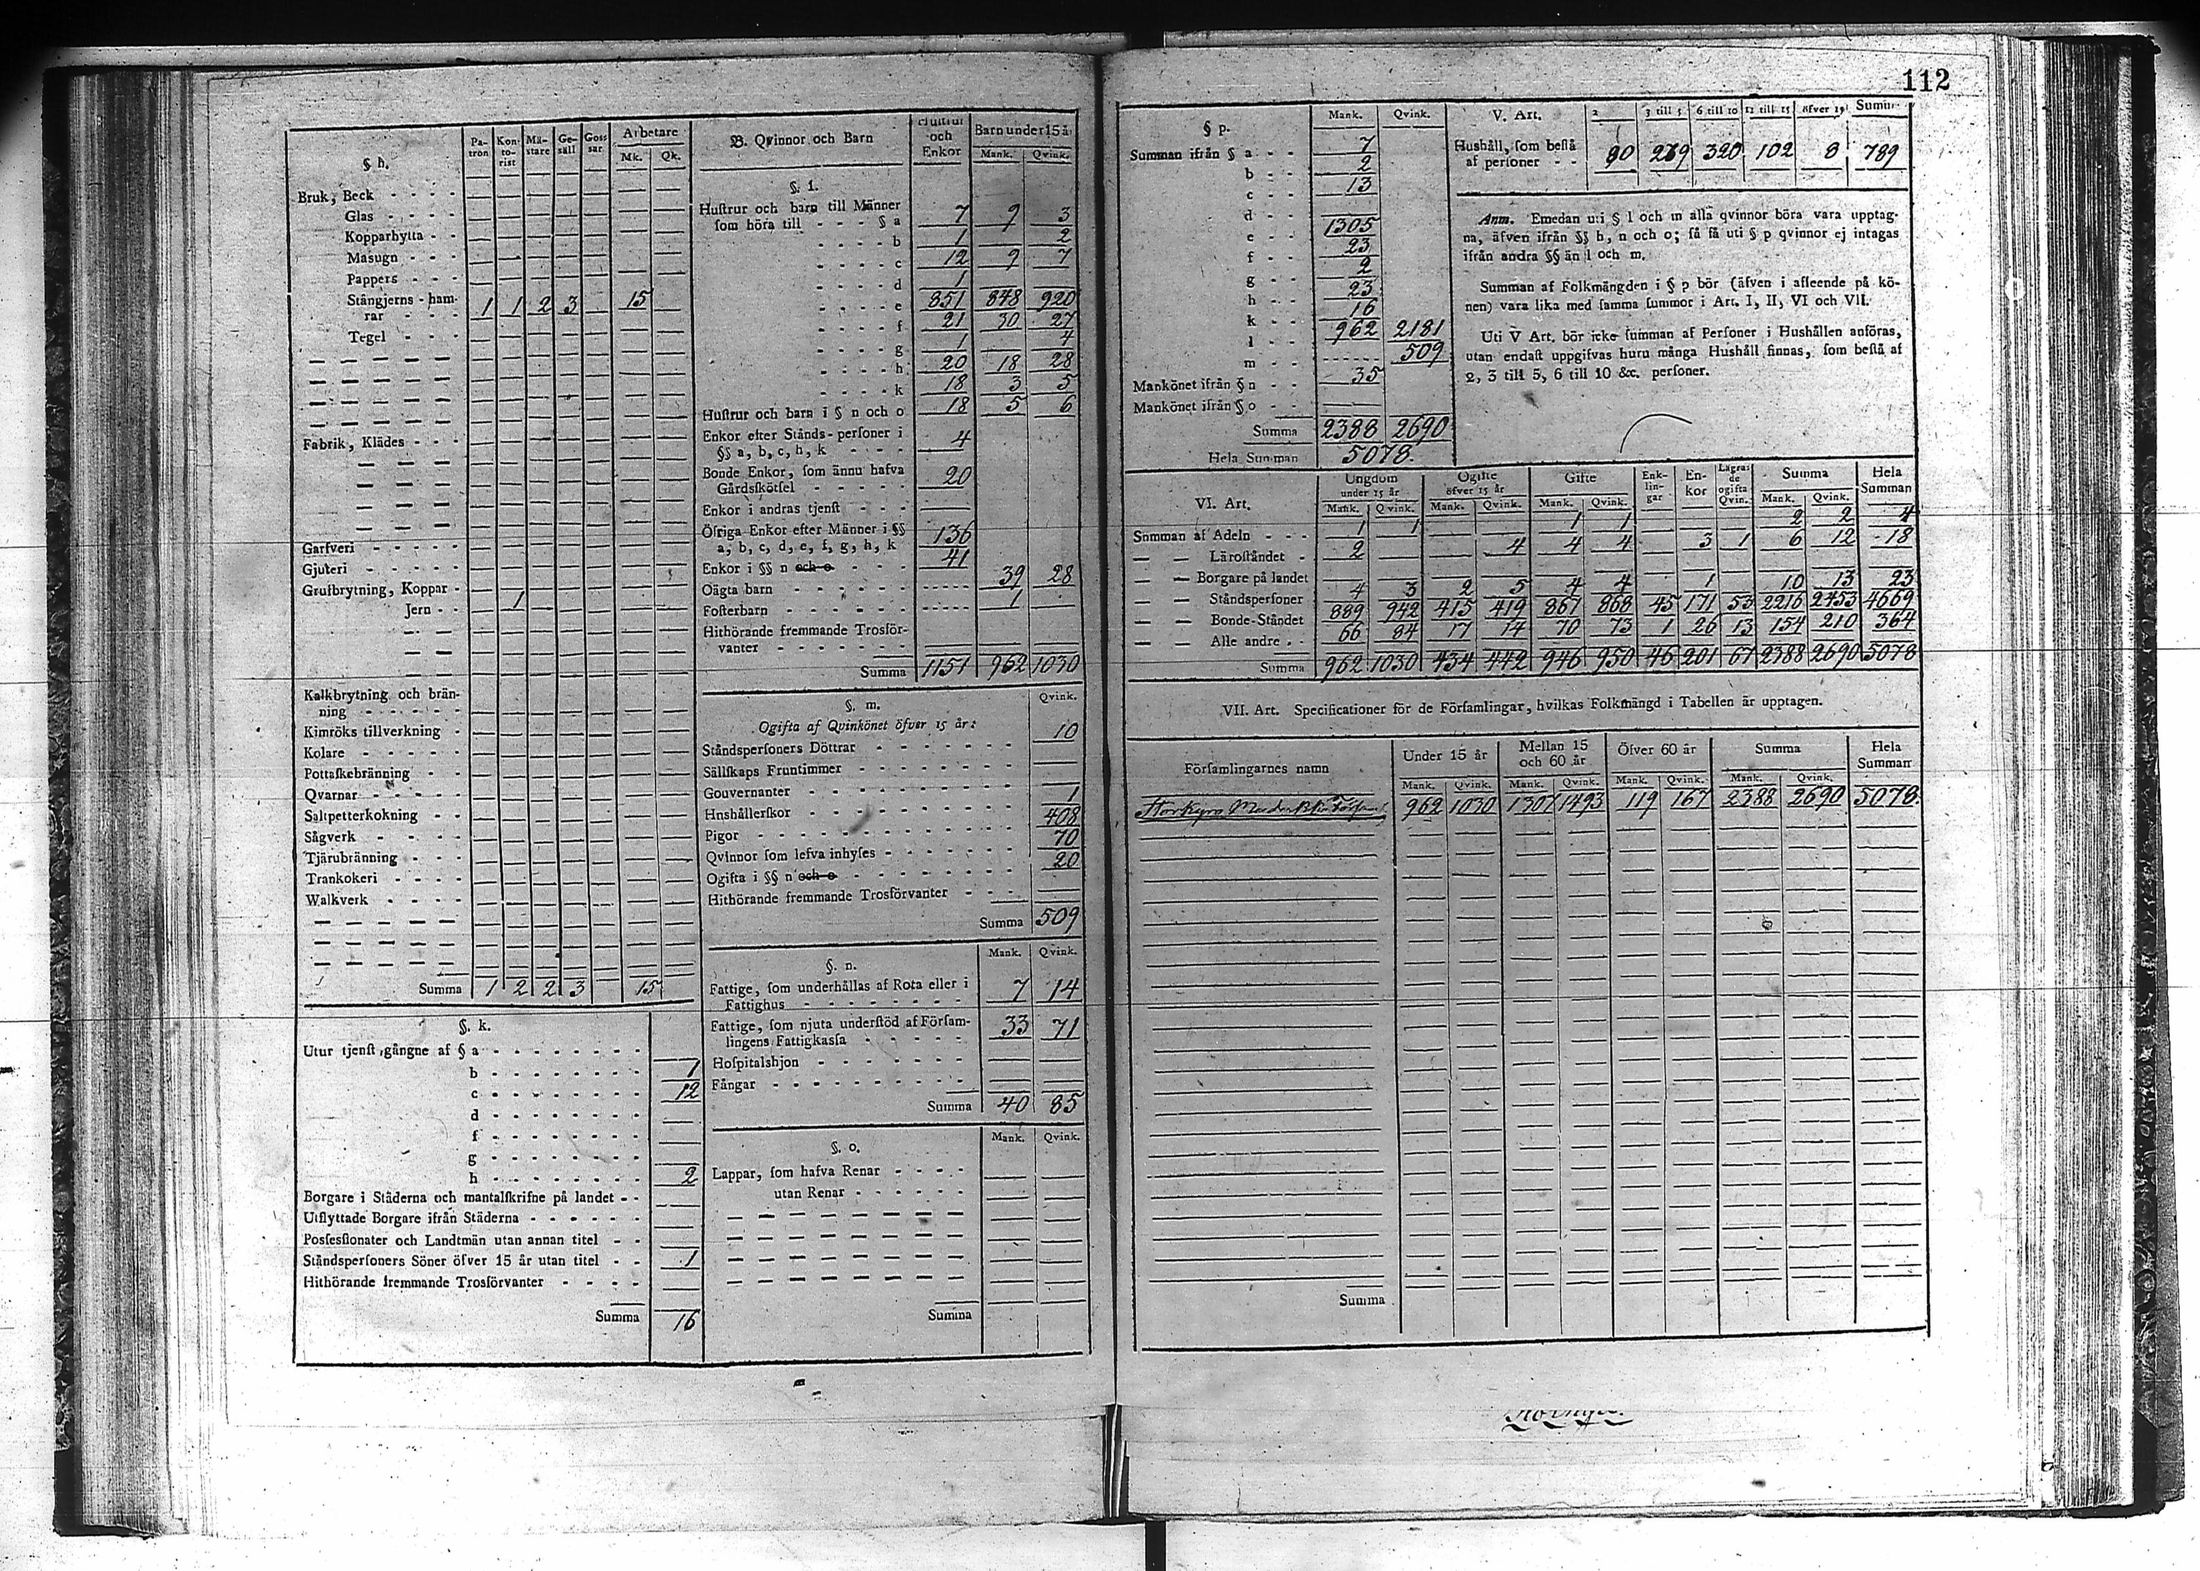 112
§ h.
Pa-tron Kon-to-rist Mä-stare Ge-säll Gos-sar Arbetare
Mk. Qk.
Bruk, Beck - - - -
Glas - - - -
Kopparhytta - -
Masugn - - -
Pappers - - -
Stångjerns-ham-
rar - - - 1 1 2 3 15
Tegel - - -
Fabrik, Klädes - - -
Garfveri - - - - -
Gjuteri - - - - -
Grufbrytning, Koppar -
Jern - - 1
Kalkbrytning och brän-
ning - - - - -
Kimröks tillverkning -
Kolare - - - - -
Pottaskebränning - -
Qvarnar - - - -
Saltpetterkokning - -
Sågverk - - - -
Tjärubränning - - -
Trankokeri - - - -
Walkverk - - - -
Summa 1 2 2 3 15
§. k.
Utur tjenst gångne af § a - - - - - - - -
b - - - - - - - - 1
c - - - - - - - - 12
d - - - - - - - -
f - - - - - - - -
g - - - - - - - -
h - - - - - - - - 2
Borgare i Städerna och mantalskrifne på landet - -
Utflyttade Borgare ifrån Städerna - - - - - -
Possessionater och Landtmän utan annan titel - -
Ståndspersoners Söner öfver 15 år utan titel - - 1
Hithörande fremmande Trosförvanter - - - -
Summa 16
B. Qvinnor och Barn
Hustrur och Enkor Barn under 15 år
Mank. Qvink.
§. l.
Hustrur och barn till Männer
som höra till - - - § a 7 9 3
- - - - b 1 2
- - - - c 12 9 7
- - - - d 1
- - - - e 851 848 920
- - - - f 21 30 27
- - - - g 1 4
- - - - h 20 18 28
- - - - k 18 3 5
Hustrur och barn i § n och o 18 5 6
Enkor efter Stånds-personer i
§§ a, b, c, h, k - - - 4
Bonde Enkor, som ännu hafva
Gårdsskötsel - - - - - 20
Enkor i andras tjenst - - -
Öfriga Enkor efter Männer i §§
a, b, c, d, e, f, g, h, k 136
Enkor i §§ n och o - - - 41
Oägta barn - - - - - - 39 28
Fosterbarn - - - - - - 1
Hithörande fremmande Trosför-
vanter - - - - - - -
Summa 1151 962 1030
§. m. Qvink.
Ogifta af Qvinkönet öfver 15 år:
Ståndspersoners Döttrar - - - - - - - 10
Sällskaps Fruntimmer - - - - - - - -
Gouvernanter - - - - - - - -
Hushållerskor - - - - - - - - 1
Pigor - - - - - - - - 408
Qvinnor som lefva inhyses - - - - - - - 70
Ogifta i §§ n och o - - - - - - - - 20
Hithörande fremmande Trosförvanter - - - -
Summa 509
Mank. Qvink.
§. n.
Fattige, som underhållas af Rota eller i
Fattighus - - - - - - - 7 14
Fattige, som njuta understöd af Försam-
lingens Fattigkassa - - - - - 33 71
Hospitalshjon - - - - - - -
Fångar - - - - - - - - -
Summa 40 85
Mank. Qvink.
§. o.
Lappar, som hafva Renar - - - -
utan Renar - - - - - -
Summa
§ p. Mank. Qvink.
Summan ifrån § a - - 7
b - - 2
c - - 13
d - -
e - - 1305
f - - 23
g - - 2
h - - 23
k - - 16
l - - 962 2181
m - - 509
Mankönet ifrån § n - - 35
Mankönet ifrån § o - -
Summa 2388 2690
Hela Summan 5078.
V. Art. 2 3 till 5 6 till 10 11 till 15 öfver 15 Summa
Hushåll, som bestå
af personer - - 90 269 320 102 8 789
Anm. Emedan uti § l och m alla qvinnor böra vara upptag-
na, äfven ifrån §§ h, n och o; så få uti § p qvinnor ej intagas
ifrån andra §§ än l och m.
Summan af Folkmängden i § p bör (äfven i afseende på kö-
nen) vara lika med samma summor i Art. I, II, VI och VII.
Uti V Art. bör icke summan af Personer i Hushållen anföras,
utan endast uppgifvas huru många Hushåll finnas, som bestå af
2, 3 till 5, 6 till 10 &c. personer.
VI. Art.
Ungdom under 15 år Ogifte öfver 15 år Gifte Enk-lin-gar En-kor Lägrade ogifta Qvin. Summa Hela Summan
Mank. Qvink. Mank. Qvink. Mank. Qvink. Mank. Qvink.
Summan af Adeln - - - 1 1 1 1 2 2 4
— — Läroståndet - 2 4 4 4 3 1 6 12 18
— — Borgare på landet
— — Ståndspersoner 4 3 2 5 4 4 1 10 13 23
— — Bonde-Ståndet 889 942 415 419 867 868 45 171 53 2216 2453 4669
— — Alle andre - - 66 84 17 14 70 73 1 26 13 154 210 364
Summa 962 1030 434 442 946 950 46 201 67 2388 2690 5078
VII. Art. Specificationer för de Församlingar, hvilkas Folkmängd i Tabellen är upptagen.
Församlingarnes namn Under 15 år Mellan 15 och 60 år Öfver 60 år Summa Hela Summan
Mank. Qvink. Mank. Qvink. Mank. Qvink. Mank. Qvink.
Storkyro 962 1030 1307 1493 119 167 2388 2690 5078.
Summa